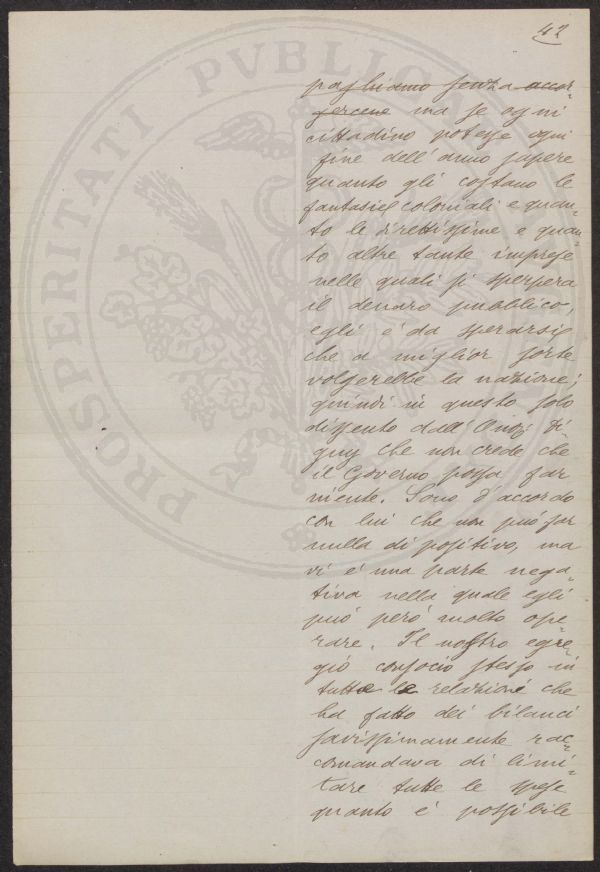 42
paghiamo senza accor-
gercene ma se ogni
cittadino potesse ogni
fine dell'anno sapere
quanto gli costano le
fantasie coloniali e quan-
to le direttissime e quan-
to altre tante imprese
nelle quali si sperpera
il denaro pubblico,
egli è da sperarsi
che a miglior sorte
volgerebbe la nazione;
quindi in questo solo
dissento dall'On. Di
che non crede che
il Governo possa far
niente. Sono d'accordo
con lui che non può far
nulla di positivo, ma
vi è una parte nega-
tiva nella quale egli
può però molto ope-
rare. Il nostro egre-
gio consocio stesso in
tutte le relazioni che
ha fatto dei bilanci
savissimamente rac-
comandava di limi-
tare tutte le spese
quanto è possibile
PROSPERITATI PVBLICAE